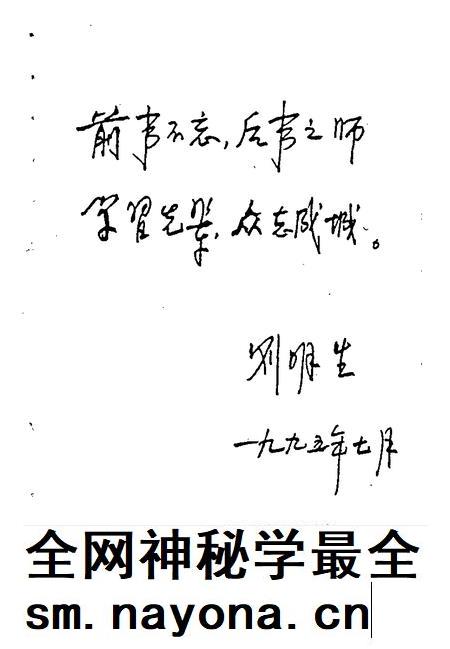 前事不忘，后事之师
学习先辈，众志成城。
刘明生
一九九五年七月
全网神秘学最全
sm.nayona.cn